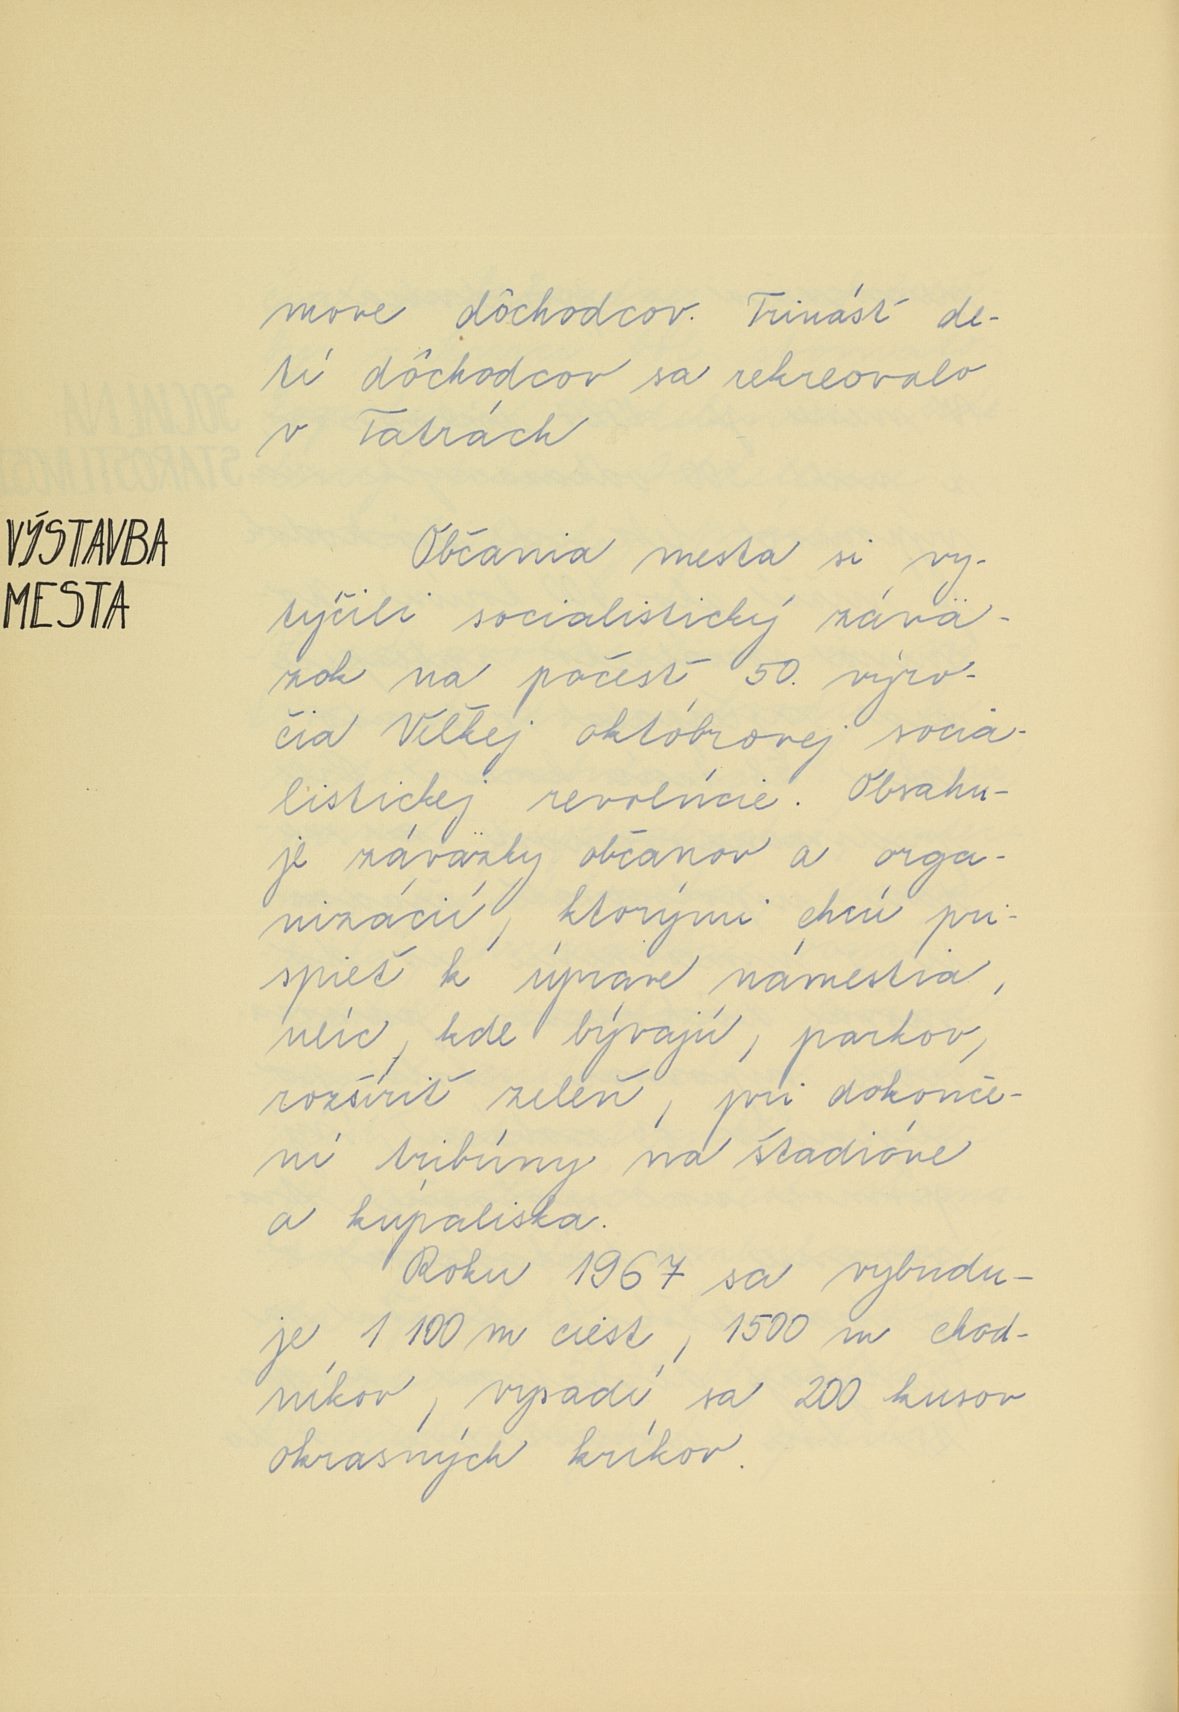 move dôchodcov. Trinásť de-
tí dôchodcov sa rekreovalo
v Tatrách
VÝSTAVBA
MESTA
Občania mesta si vy-
týčili socialistický závä-
zok na počesť 50. výro-
čia Veľkej októbrovej socia-
listickej revolúcie. Obsahu-
je záväzky občanov a orga-
nizácií, ktorými chcú pri-
spieť k úprave námestia,
ulíc, kde bývajú, parkov,
rozšíriť zeleň, pri dokonče-
ní tribúny na štadióne
a kúpaliska.
Roku 1967 sa vybudu-
je 1 100 m ciest, 1500 m chod-
níkov, vysadí sa 200 kusov
okrasných kríkov.